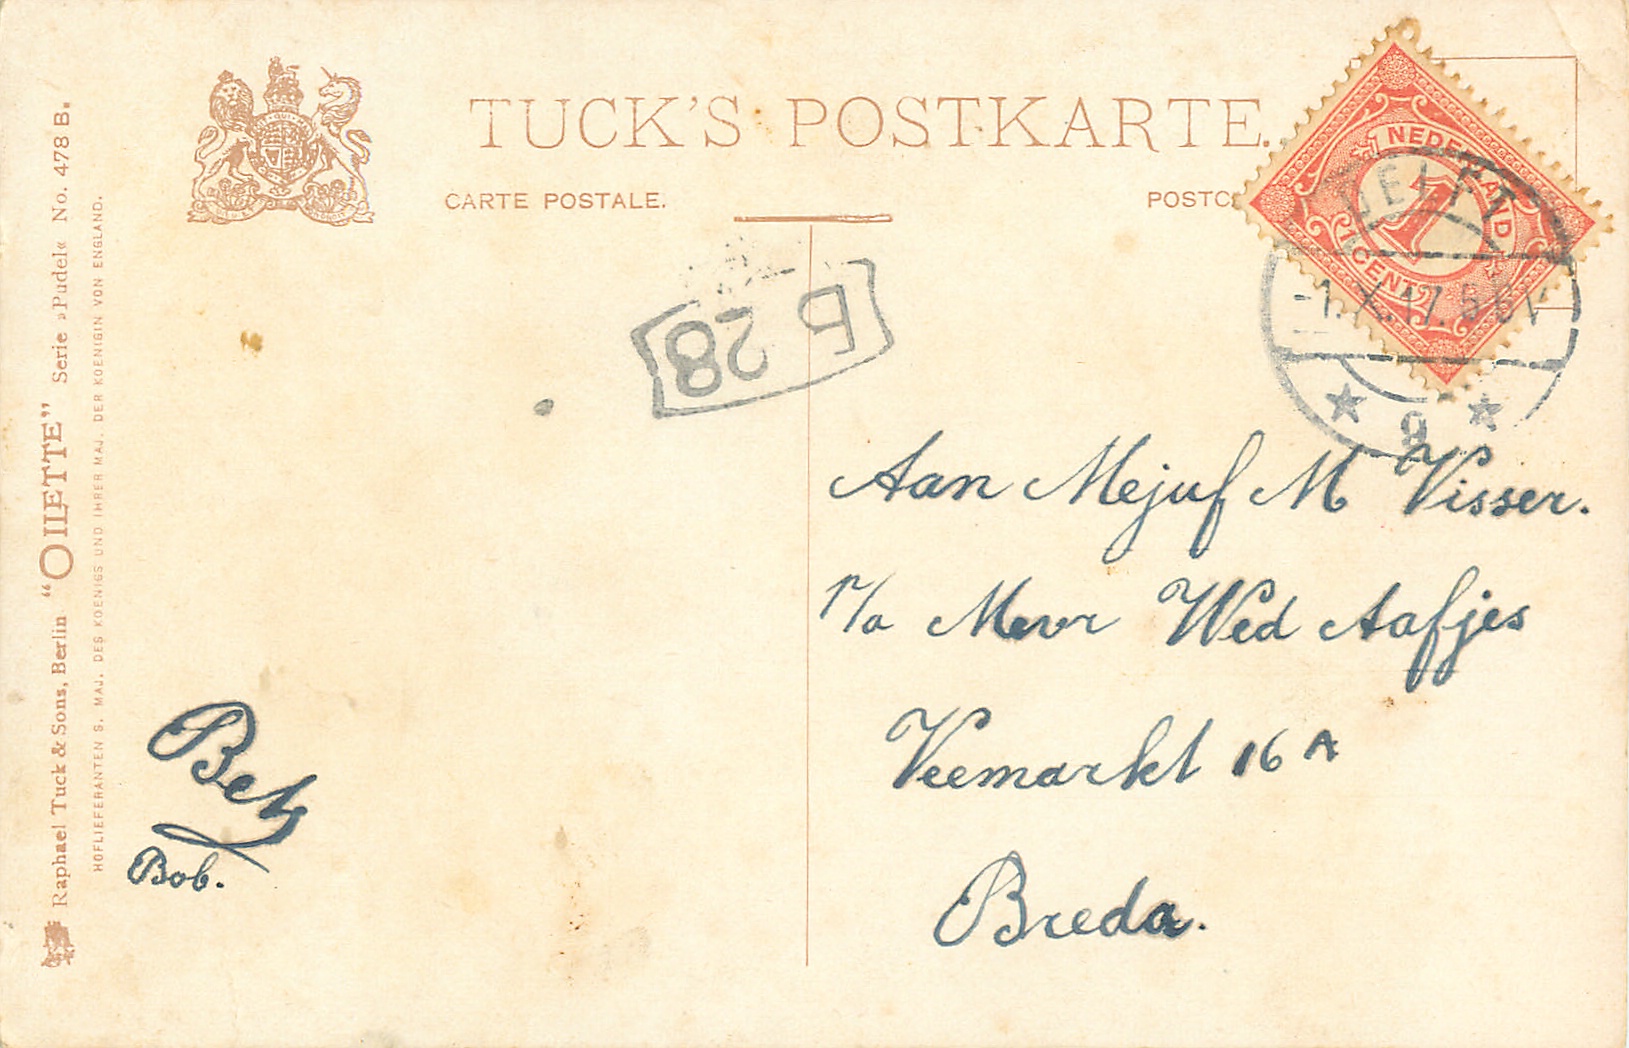 TUCK'S POSTKARTE.
CARTE POSTALE.
POSTC
NEDERLAND
1
1 CENT
DELFT
-1.X.17. 5-6 N
9
B 28
Raphael Tuck & Sons, Berlin “OILETTE” Serie »Pudel« No. 478 B.
HOFLIEFERANTEN S. MAJ. DES KOENIGS UND IHRER MAJ. DER KOENIGIN VON ENGLAND.
Aan Mejuf M Visser.
p/a Mevr Wed Aafjes
Veemarkt 16 A
Breda.
Bets
Bob.